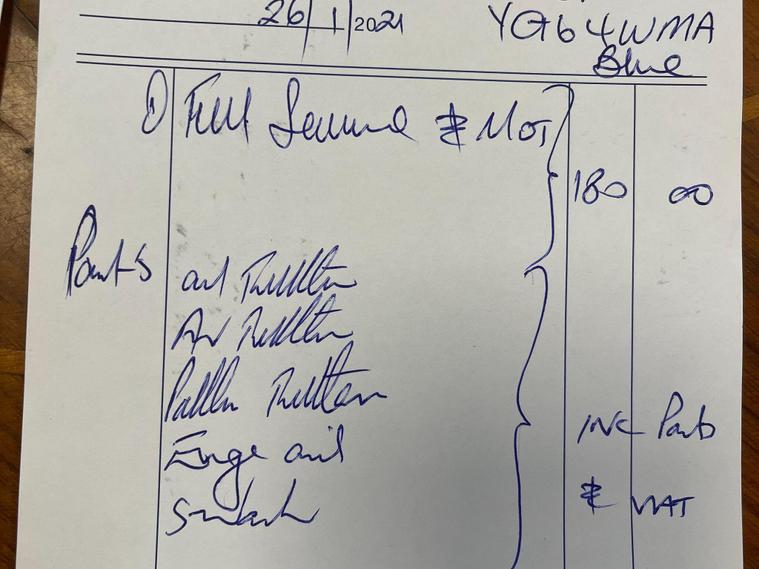 26/1/2021 YG64WMA
Blue
1) Full Service & MOT
180 00
Parts oil Filter
Air Filter
Pollen Filter
Engine oil
INC Parts
& VAT